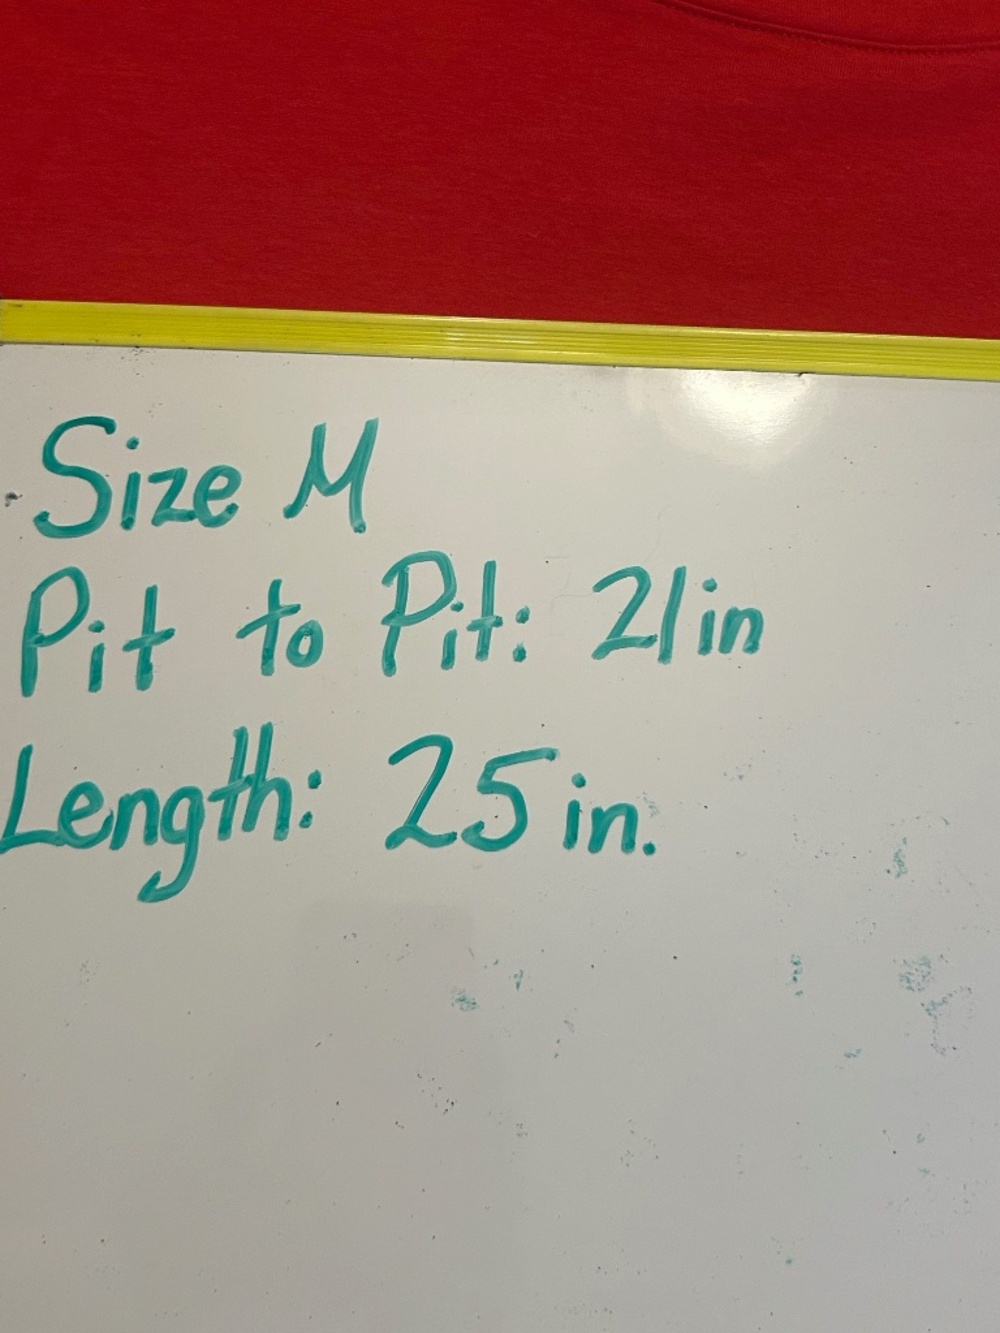 Size M
Pit to Pit: 21in
Length: 25in.